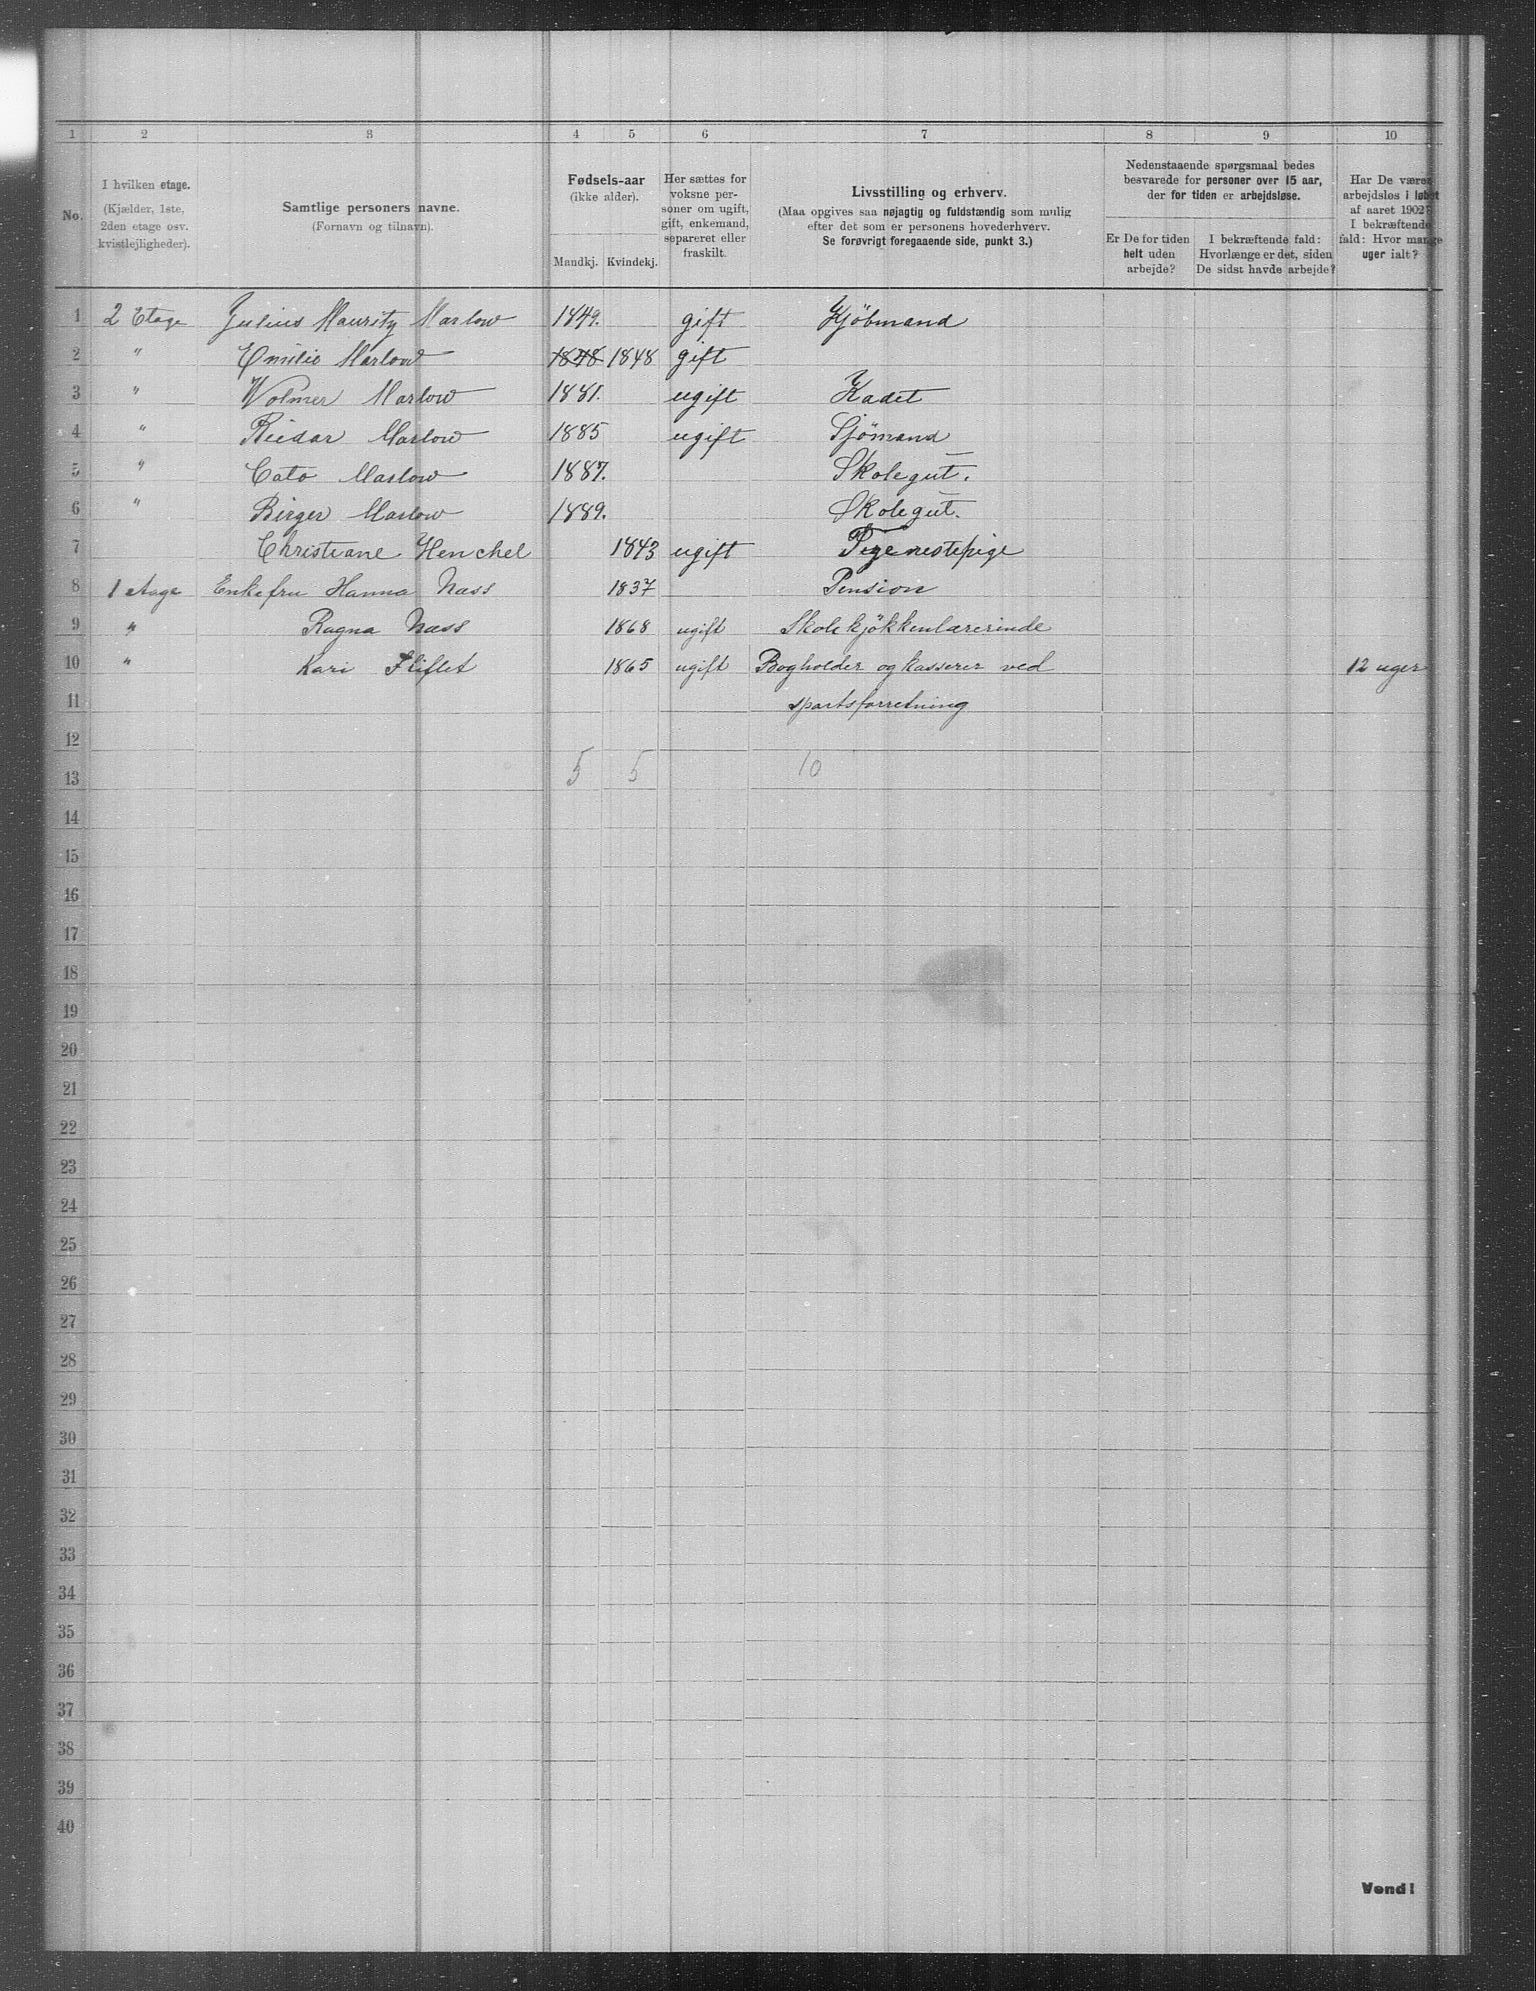 1 2 3 4 5 6 7 8 9 10
No.
I hvilken etage.
(Kjælder, 1ste,
2den etage osv.
kvistlejligheder).
Samtlige personers navne.
(Fornavn og tilnavn).
Fødsels-aar
(ikke alder).
Mandkj. Kvindekj.
Her sættes for
voksne per-
soner om ugift,
gift, enkemand,
separeret eller
fraskilt.
Livsstilling og erhverv.
(Maa opgives saa nøjagtig og fuldstændig som mulig
efter det som er personens hovederhverv.
Se forøvrigt foregaaende side, punkt 3.)
Nedenstaaende spørgsmaal bedes
besvarede for personer over 15 aar,
der for tiden er arbejdsløse.
Er De for tiden
helt uden
arbejde?
I bekræftende fald:
Hvorlænge er det, siden
De sidst havde arbejde?
Har De været
arbejdsløs i løbet
af aaret 1902?
I bekræftende
fald: Hvor mange
uger ialt?
1 2 Etage Julius Mauritz Marlow 1849. gift Kjöbmand
2 " Emilie Marlow 1848 1848 gift
3 " Wolmer Marlow 1881. ugift Kadet
4 " Reidar Marlow 1885 ugift Sjömand
5 " Cato Marlow 1887. Skolegut.
6 " Birger Marlow 1889. Skolegut.
7 Christiane Henchel 1843 ugift Tjenestepige
8 1 Etage Enkefru Hanna Næss 1837 Pension
9 " Ragna Næss 1868 ugift Skolekjökkenlærerinde
10 " Kari Fliflet 1865 ugift Bogholder og kasserer ved 12 uger
11 sportsforretning
12
13 5 5 10
14
15
16
17
18
19
20
21
22
23
24
25
26
27
28
29
30
31
32
33
34
35
36
37
38
39
40
Vend!